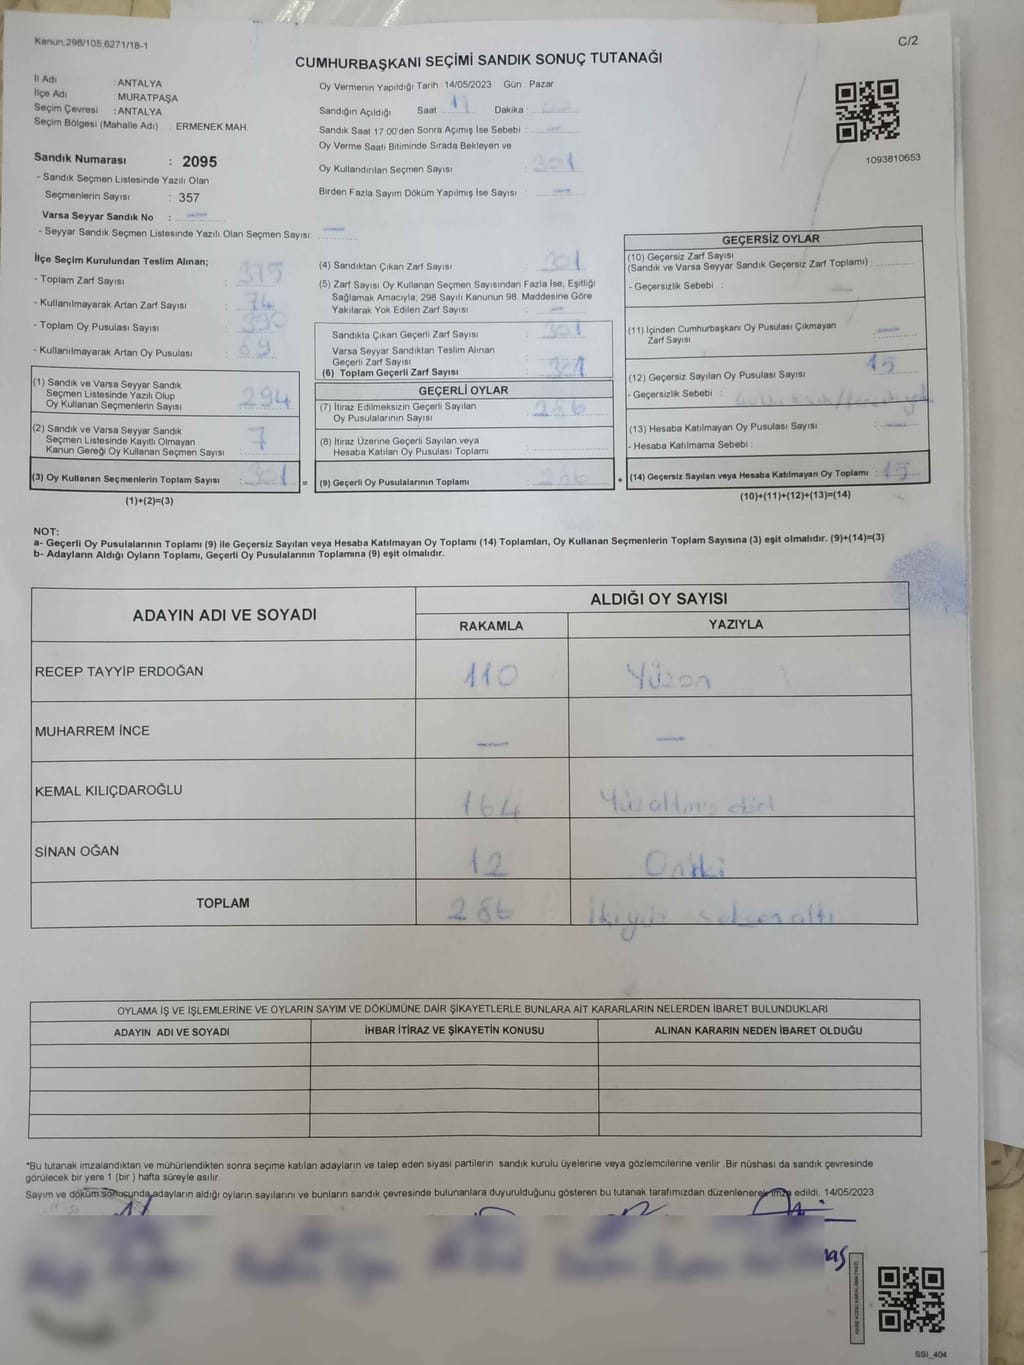 Kanun;298/105;6271/18-1
C/2
CUMHURBAŞKANI SEÇİMİ SANDIK SONUÇ TUTANAĞI
İl Adı : ANTALYA
İlçe Adı : MURATPAŞA
Seçim Çevresi : ANTALYA
Seçim Bölgesi (Mahalle Adı) : ERMENEK MAH.
Sandık Numarası : 2095
- Sandık Seçmen Listesinde Yazılı Olan
Seçmenlerin Sayısı : 357
Varsa Seyyar Sandık No : —
- Seyyar Sandık Seçmen Listesinde Yazılı Olan Seçmen Sayısı: —
Oy Vermenin Yapıldığı Tarih : 14/05/2023 Gün : Pazar
Sandığın Açıldığı Saat : 17 Dakika :
Sandık Saat 17.00'den Sonra Açımış İse Sebebi : —
Oy Verme Saati Bitiminde Sırada Bekleyen ve
Oy Kullandırılan Seçmen Sayısı : 301
Birden Fazla Sayım Döküm Yapılmış İse Sayısı : —
1093810653
İlçe Seçim Kurulundan Teslim Alınan;
- Toplam Zarf Sayısı : 375
- Kullanılmayarak Artan Zarf Sayısı : 74
- Toplam Oy Pusulası Sayısı : 390
- Kullanılmayarak Artan Oy Pusulası : 89
(1) Sandık ve Varsa Seyyar Sandık
Seçmen Listesinde Yazılı Olup
Oy Kullanan Seçmenlerin Sayısı : 294
(2) Sandık ve Varsa Seyyar Sandık
Seçmen Listesinde Kayıtlı Olmayan
Kanun Gereği Oy Kullanan Seçmen Sayısı : 7
(3) Oy Kullanan Seçmenlerin Toplam Sayısı : 301 =
(1)+(2)=(3)
(4) Sandıktan Çıkan Zarf Sayısı : 301
(5) Zarf Sayısı Oy Kullanan Seçmen Sayısından Fazla İse, Eşitliği
Sağlamak Amacıyla; 298 Sayılı Kanunun 98. Maddesine Göre
Yakılarak Yok Edilen Zarf Sayısı : —
Sandıkta Çıkan Geçerli Zarf Sayısı : 301
Varsa Seyyar Sandıktan Teslim Alınan
Geçerli Zarf Sayısı : —
(6) Toplam Geçerli Zarf Sayısı : 301
GEÇERLİ OYLAR
(7) İtiraz Edilmeksizin Geçerli Sayılan
Oy Pusulalarının Sayısı : 286
(8) İtiraz Üzerine Geçerli Sayılan veya
Hesaba Katılan Oy Pusulası Toplamı :
(9) Geçerli Oy Pusulalarının Toplamı : 286 +
GEÇERSİZ OYLAR
(10) Geçersiz Zarf Sayısı
(Sandık ve Varsa Seyyar Sandık Geçersiz Zarf Toplamı) :
- Geçersizlik Sebebi : —
(11) İçinden Cumhurbaşkanı Oy Pusulası Çıkmayan
Zarf Sayısı : —
(12) Geçersiz Sayılan Oy Pusulası Sayısı : 15
- Geçersizlik Sebebi :
(13) Hesaba Katılmayan Oy Pusulası Sayısı : —
- Hesaba Katılmama Sebebi :
(14) Geçersiz Sayılan veya Hesaba Katılmayan Oy Toplamı : 15
(10)+(11)+(12)+(13)=(14)
NOT:
a- Geçerli Oy Pusulalarının Toplamı (9) ile Geçersiz Sayılan veya Hesaba Katılmayan Oy Toplamı (14) Toplamları, Oy Kullanan Seçmenlerin Toplam Sayısına (3) eşit olmalıdır. (9)+(14)=(3)
b- Adayların Aldığı Oyların Toplamı, Geçerli Oy Pusulalarının Toplamına (9) eşit olmalıdır.
ADAYIN ADI VE SOYADI
ALDIĞI OY SAYISI
RAKAMLA YAZIYLA
RECEP TAYYİP ERDOĞAN 110 Yüzon
MUHARREM İNCE — —
KEMAL KILIÇDAROĞLU 164 Yüzaltmış dört
SİNAN OĞAN 12 Oniki
TOPLAM 286 İkiyüz seksenaltı
OYLAMA İŞ VE İŞLEMLERİNE VE OYLARIN SAYIM VE DÖKÜMÜNE DAİR ŞİKAYETLERLE BUNLARA AİT KARARLARIN NELERDEN İBARET BULUNDUKLARI
ADAYIN ADI VE SOYADI İHBAR İTİRAZ VE ŞİKAYETİN KONUSU ALINAN KARARIN NEDEN İBARET OLDUĞU
*Bu tutanak imzalandıktan ve mühürlendikten sonra seçime katılan adayların ve talep eden siyasi partilerin sandık kurulu üyelerine veya gözlemcilerine verilir .Bir nüshası da sandık çevresinde
görülecek bir yere 1 (bir ) hafta süreyle asılır.
Sayım ve döküm sonucunda adayların aldığı oyların sayılarını ve bunların sandık çevresinde bulunanlara duyurulduğunu gösteren bu tutanak tarafımızdan düzenlenerek imza edildi. 14/05/2023
SSI_404